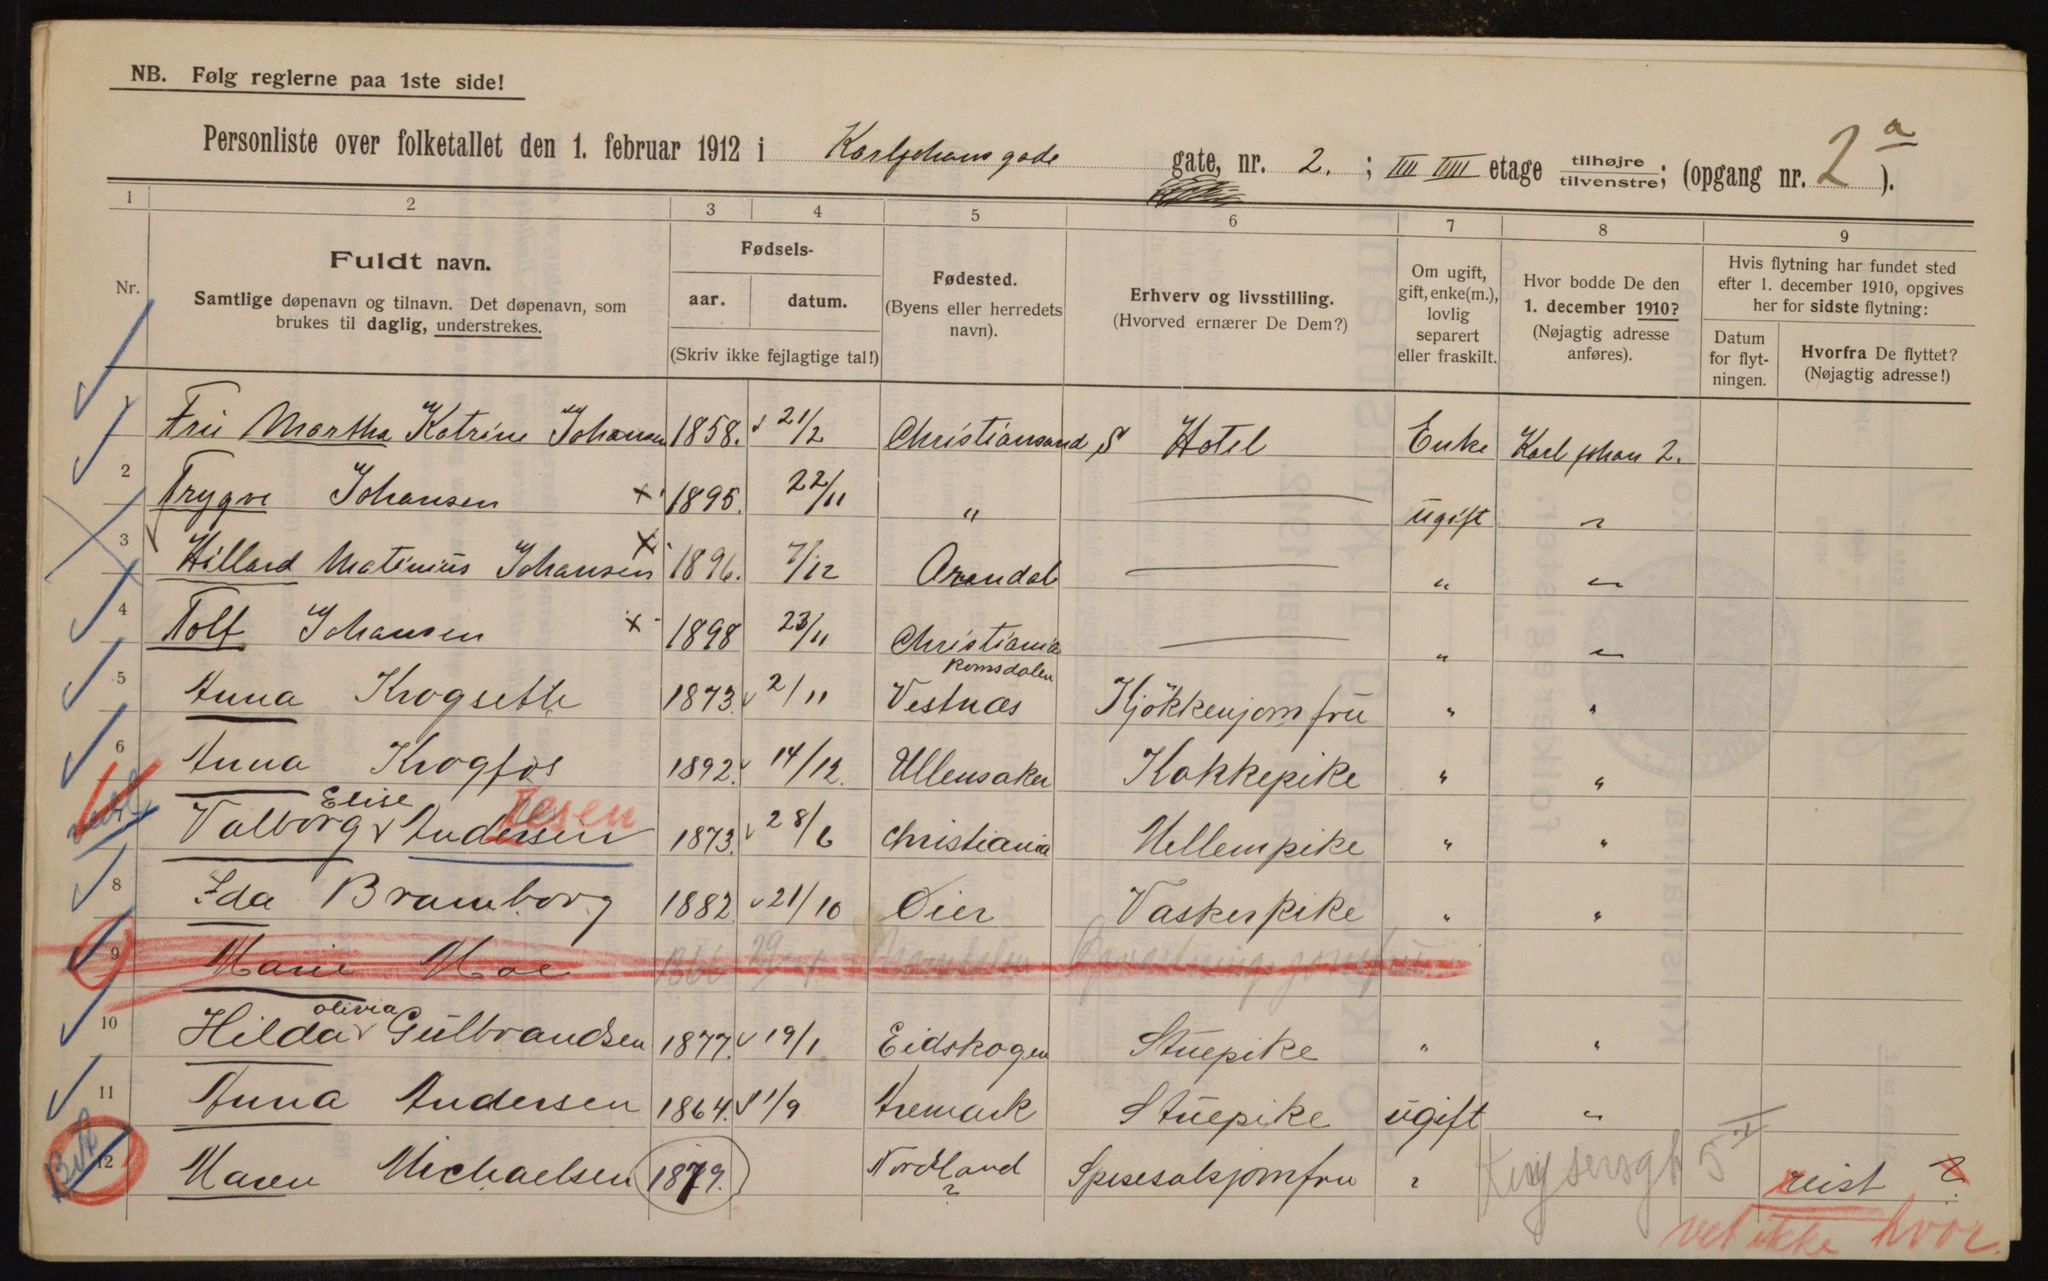 NB. Følg reglerne paa 1ste side!
Personliste over folketallet den 1. februar 1912 i Karljohansgade gate, nr. 2. ; III IIII etage tilhøjre/tilvenstre; (opgang nr. 2a ).
1 2 3 4 5 6 7 8 9
Nr.
Fuldt navn.
Samtlige døpenavn og tilnavn. Det døpenavn, som
brukes til daglig, understrekes.
Fødsels-
aar. datum.
(Skriv ikke fejlagtige tal!)
Fødested.
(Byens eller herredets
navn).
Erhverv og livsstilling.
(Hvorved ernærer De Dem?)
Om ugift,
gift, enke(m.),
lovlig
separert
eller fraskilt.
Hvor bodde De den
1. december 1910?
(Nøjagtig adresse
anføres).
Hvis flytning har fundet sted
efter 1. december 1910, opgives
her for sidste flytning:
Datum
for flyt-
ningen.
Hvorfra De flyttet?
(Nøjagtig adresse!)
1 Fru Martha Katrine Johansen 1858. 21/2 Christiansand S Hotel Enke Karl Johan 2.
2 Trygve Johansen x 1895. 22/11 " — ugift "
3 Hillard Matinius Johansen x 1896. 7/12 Arendal — " "
4 Rolf Johansen x 1898 23/11 Christiania — " "
5 Anna Krogseth 1873. 2/11 Romsdalen
Vestnæs Kjökkenjomfru " "
6 Anna Krogfos 1892. 14/12. Ullensaker Kokkepike " "
Valborg Elise Andersen 1873. 28/6 Christiania Mellempike " "
8 Ida Bramborg 1882 21/10 Öier Vaskerpike " "
9 Marie Moe 1866 29
10 Hilda Olivia Gulbrandsen 1877. 19/1 Eidskogen Stuepike " "
11 Anna Andersen 1864. 1/9 Aremark Stuepike ugift "
12 Maren Michaelsen 1879. Nordland ? Spisesalsjomfru " 5 reist ?
vet ikke hvor.